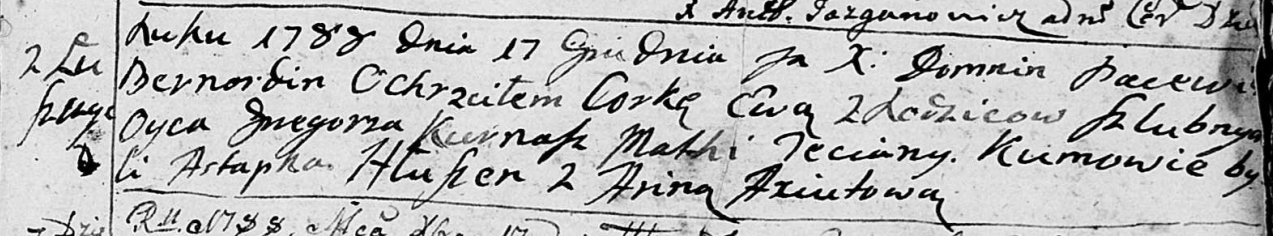 X Anth. Jazganowicz adns Cer. Dzie
Roku 1788 dnia 17 Grudnia ja X: Domnin Pacewi
Bernardin Ochrzciłem Corkę Ewę z Rodzicow szlubnych
Oyca Gregorza Kurnasz Matki Teciany. Kumowie by
li Astapka Hluszen z Arina Axiutowa
Ru. 1788, Mca Xbr 17